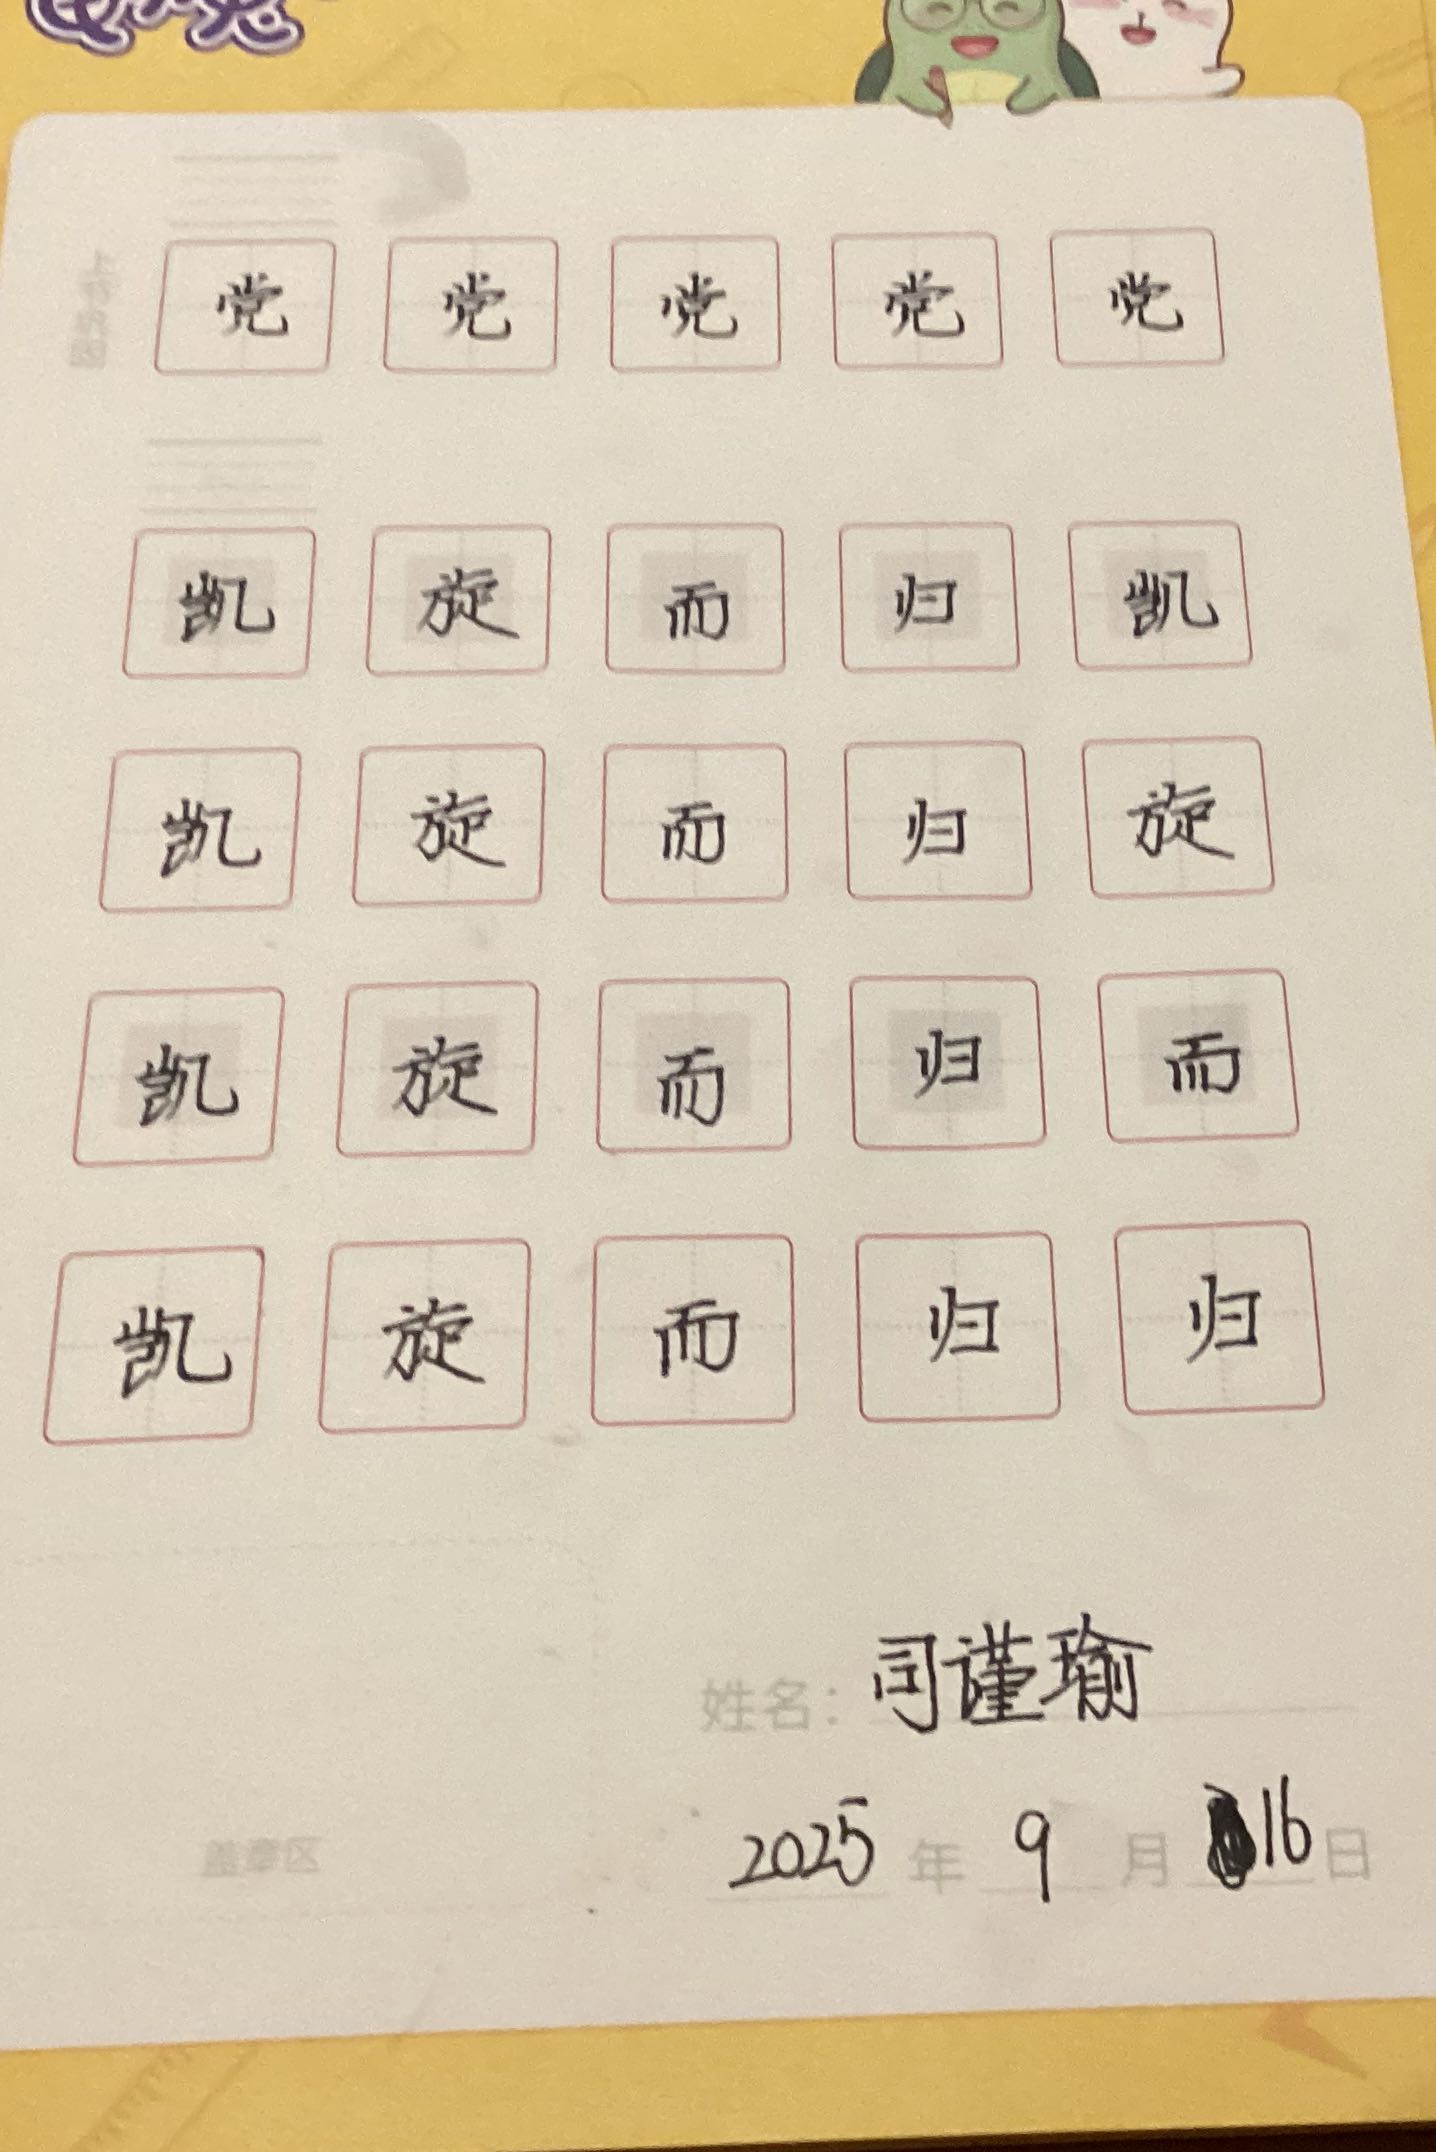 党 党 党 党 党
凯 旋 而 归 凯
凯 旋 而 归 旋
凯 旋 而 归 而
凯 旋 而 归 归
姓名：司谨瑜
2025 年 9 月 16 日
盖章区